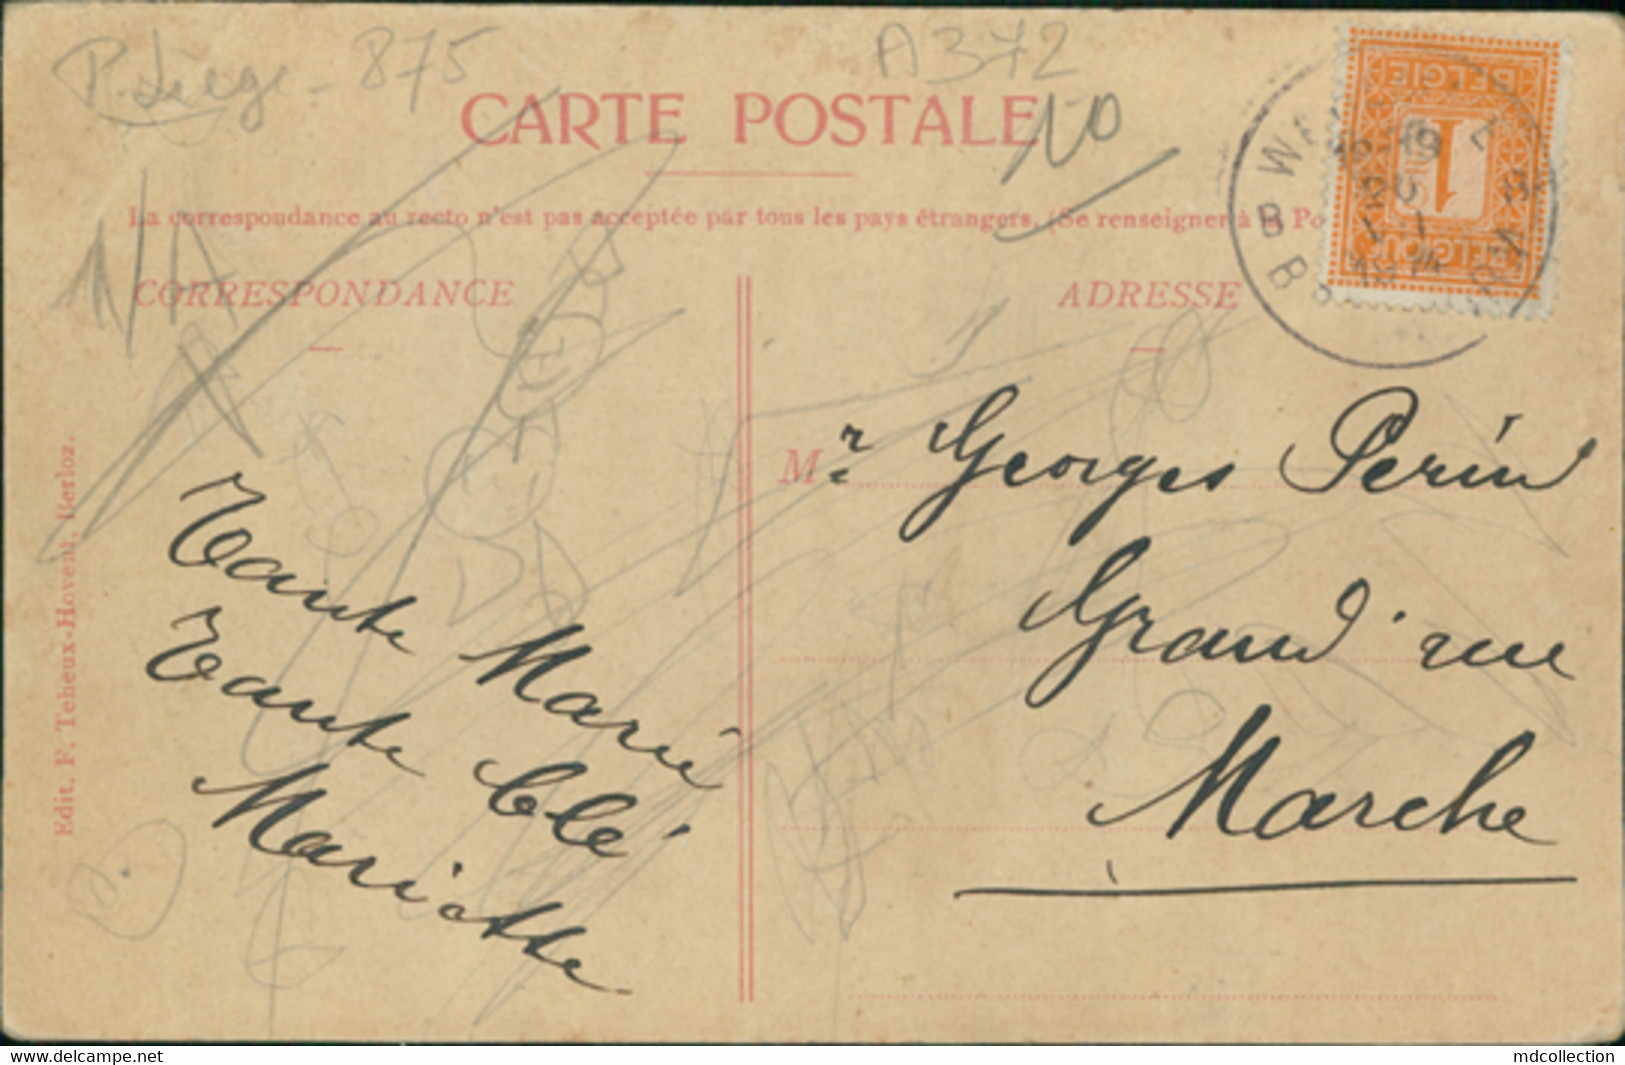 P. Liège - 875
A372
10
CARTE POSTALE
La correspondance au recto n'est pas acceptée par tous les pays étrangers. (Se renseigner à la Po
N/A
CORRESPONDANCE
ADRESSE
BELGIE
1
BELGIQUE
Tante Marie
Tante Clé
Mariette
Mr Georges Perin
Grand'rue
Marche
Edit. F. Teheux-Hovent, Berloz.
delcampe.net
mdcollection